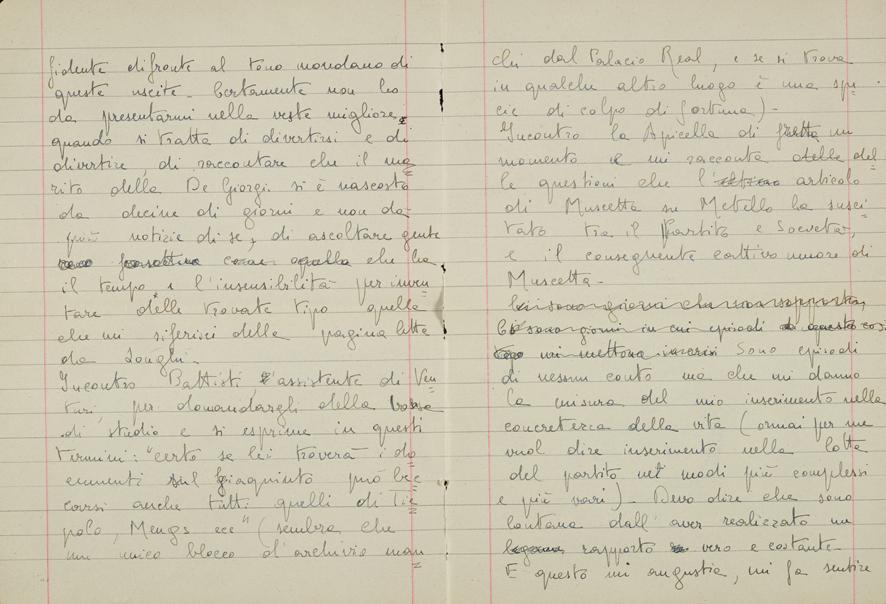 fidente difronte al tono mondano di
queste uscite. Certamente non ho
da presentarmi nella veste migliore
quando si tratta di divertirsi e di
divertire, di raccontare che il ma=
rito della De Giorgi si è nascosto
da decine di giorni e non dà
più notizie di se, di ascoltare gente
che ha
il tempo e l'insensibilità per inven
tare delle trovate tipo quella
che mi riferisci della pagina letta
da Longhi.
Incontro Battisti, l'assistente di Ven
turi, per domandargli della borsa
di studio e si esprime in questi
termini: "certo se lei troverà i do
cumenti sul Giaquinto può bec
carsi anche tutti quelli di Tie
polo, Mengs ecc" (sembra che
un unico blocco d'archivio man
chi dal Palacio Real, e se si trova
in qualche altro luogo è una spe
cie di colpo di fortuna) -
Incontro la Apicella di fretta un
momento e mi racconta delle del
le questioni che l' articolo
di Muscetta su Metello ha susci
tato tra il Partito e Società,
e il conseguente cattivo umore di
Muscetta -
Ci sono giorni che non sopporto,
Ci sono giorni in cui episodi di questo
mi mettono Sono episodi
di nessun conto ma che mi danno
la misura del mio inserimento nella
concretezza della vita (ormai per me
vuol dire inserimento nella lotta
del partito nei modi più complessi
e più vari) - Devo dire che sono
lontana dall'aver realizzato un
legame rapporto vero e costante -
E questo mi angustia, mi fa sentire